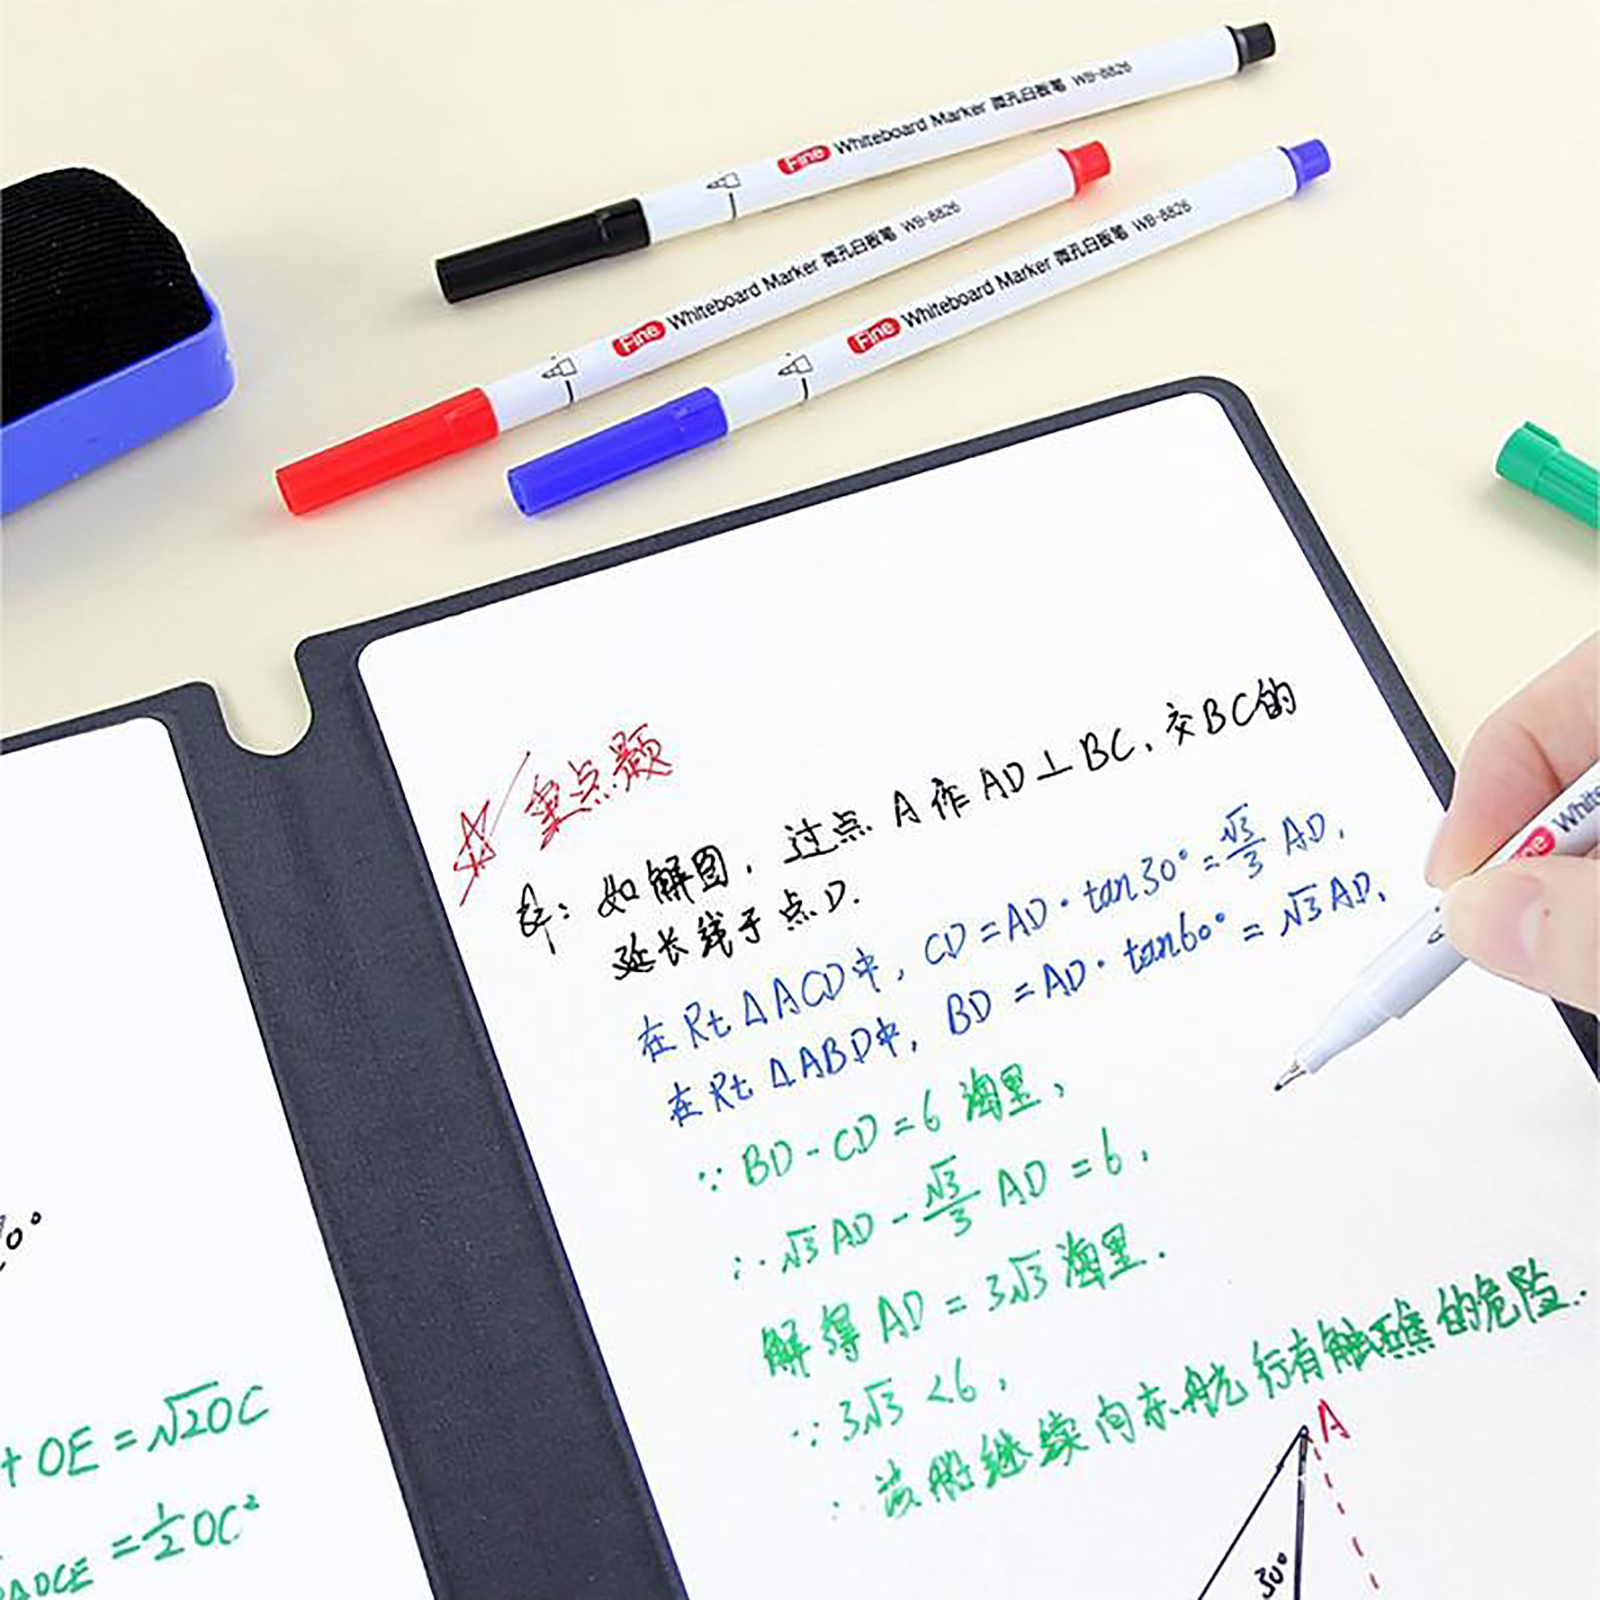 Fine Whiteboard Marker 微孔白板笔 WB-8826
Fine Whiteboard Marker 微孔白板笔 WB-8826
Fine Whiteboard Marker 微孔白板笔 WB-8826
重点题
如解图，过点 A 作 AD⊥BC，交BC的
延长线于点D.
在Rt△ACD中，CD=AD·tan30°=√3/3 AD,
在Rt△ABD中，BD=AD·tan60°=√3 AD,
∵BD-CD=6 海里，
∴√3 AD-√3/3 AD=6,
解得 AD=3√3 海里.
∵3√3<6,
∴该船继续向东航行有触礁的危险.
A
30°
+OE=√2OC
=1/2OC²